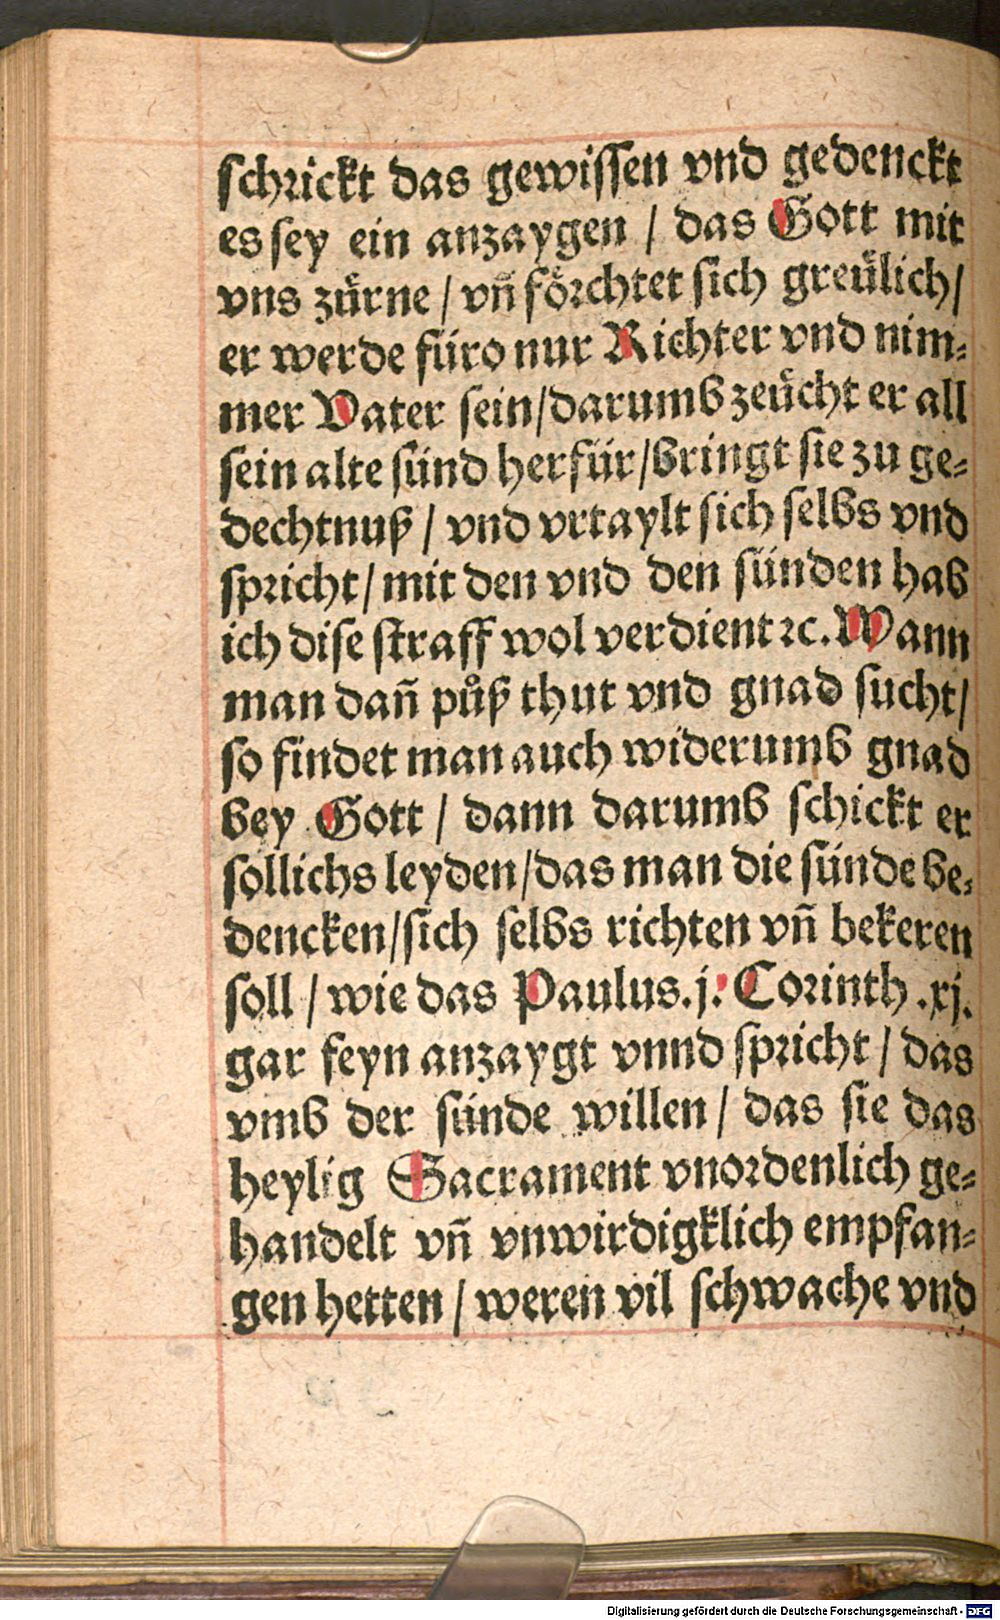 schrickt das gewissen vnd gedenckt
es sey ein anzaygen / das Gott mit
vns zürne / vñ förchtet sich greülich /
er werde füro nur Richter vnd nim-
mer Vater sein / darumb zeücht er all
sein alte sünd herfür / bringt sie zu ge-
dechtnuß / vnd vrtaylt sich selbs vnd
spricht / mit den vnd den sünden hab
ich dise straff wol verdient ꝛc. Wann
man dañ půß thut vnd gnad sucht /
so findet man auch widerumb gnad
bey Gott / dann darumb schickt er
sollichs leyden / das man die sünde be-
dencken / sich selbs richten vñ bekeren
soll / wie das Paulus .j. Corinth .xj.
gar feyn anzaygt vnnd spricht / das
vmb der sünde willen / das sie das
heylig Sacrament vnordenlich ge-
handelt vñ vnwirdigklich empfan-
gen hetten / weren vil schwache vnd
Digitalisierung gefördert durch die Deutsche Forschungsgemeinschaft - DFG